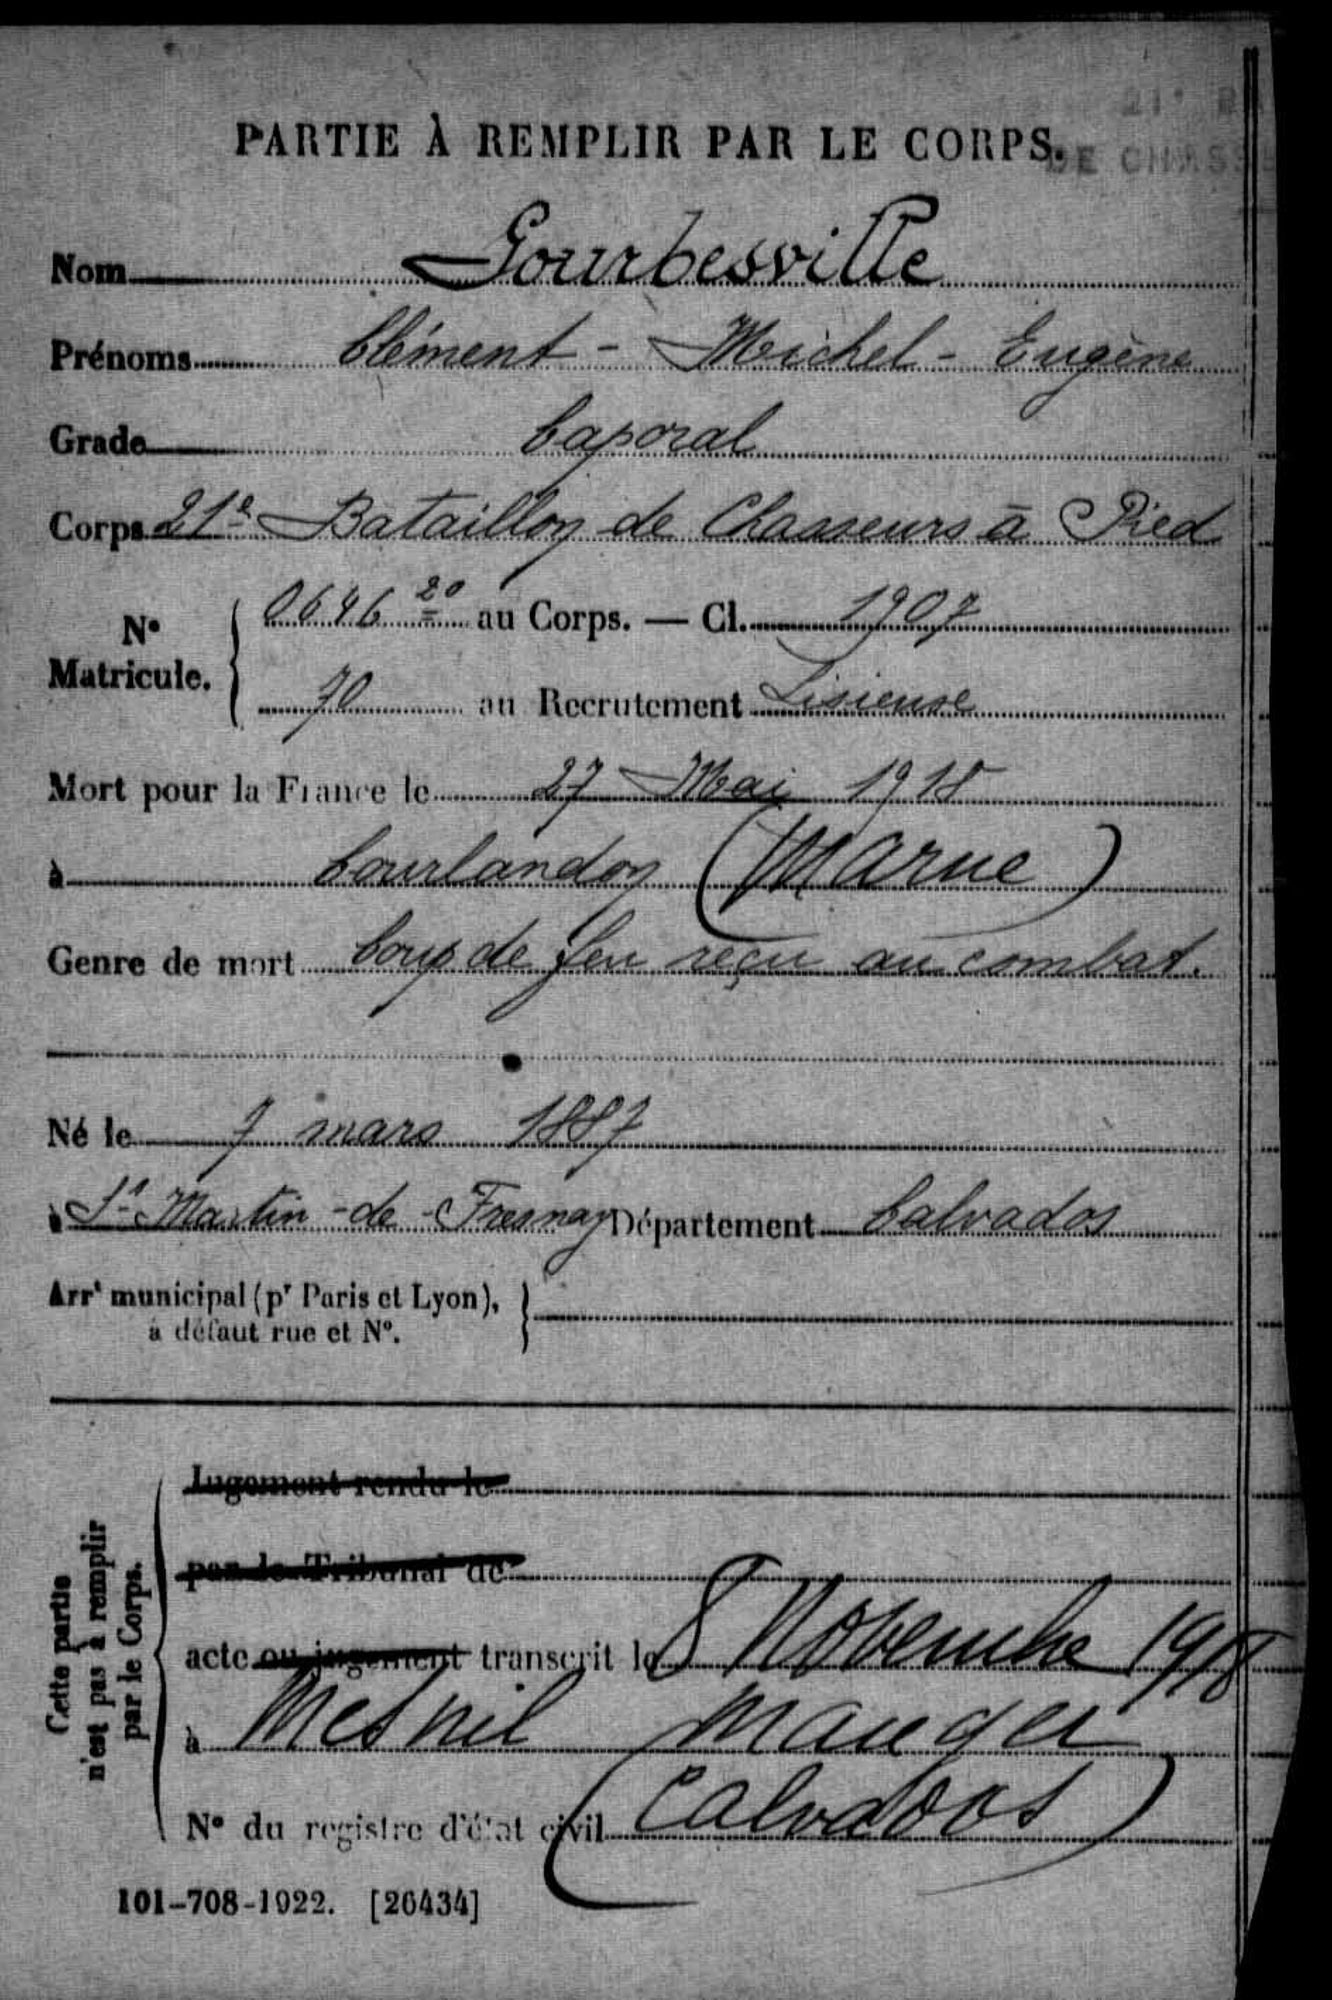 PARTIE À REMPLIR PAR LE CORPS.
DE CHASSE
Nom Gourbesville
Prénoms Clément - Michel - Eugène
Grade Caporal
Corps 21e Bataillon de Chasseurs à Pied
N° Matricule. 0646 20 au Corps. — Cl. 1907
70 au Recrutement Lisieux
Mort pour la France le 27 Mai 1918
à Courlandon (Marne)
Genre de mort Coup de feu reçu au combat.
Né le 7 mars 1887
à St Martin-de-Fresnay Département Calvados
Arrt municipal (pr Paris et Lyon),
à défaut rue et N°.
Cette partie
n'est pas à remplir
par le Corps.
Jugement rendu le
par le Tribunal de
acte ou jugement transcrit le 8 Novembre 1918
à Mesnil Mauger
(Calvados)
N° du registre d'état civil
101-708-1922. [26434]